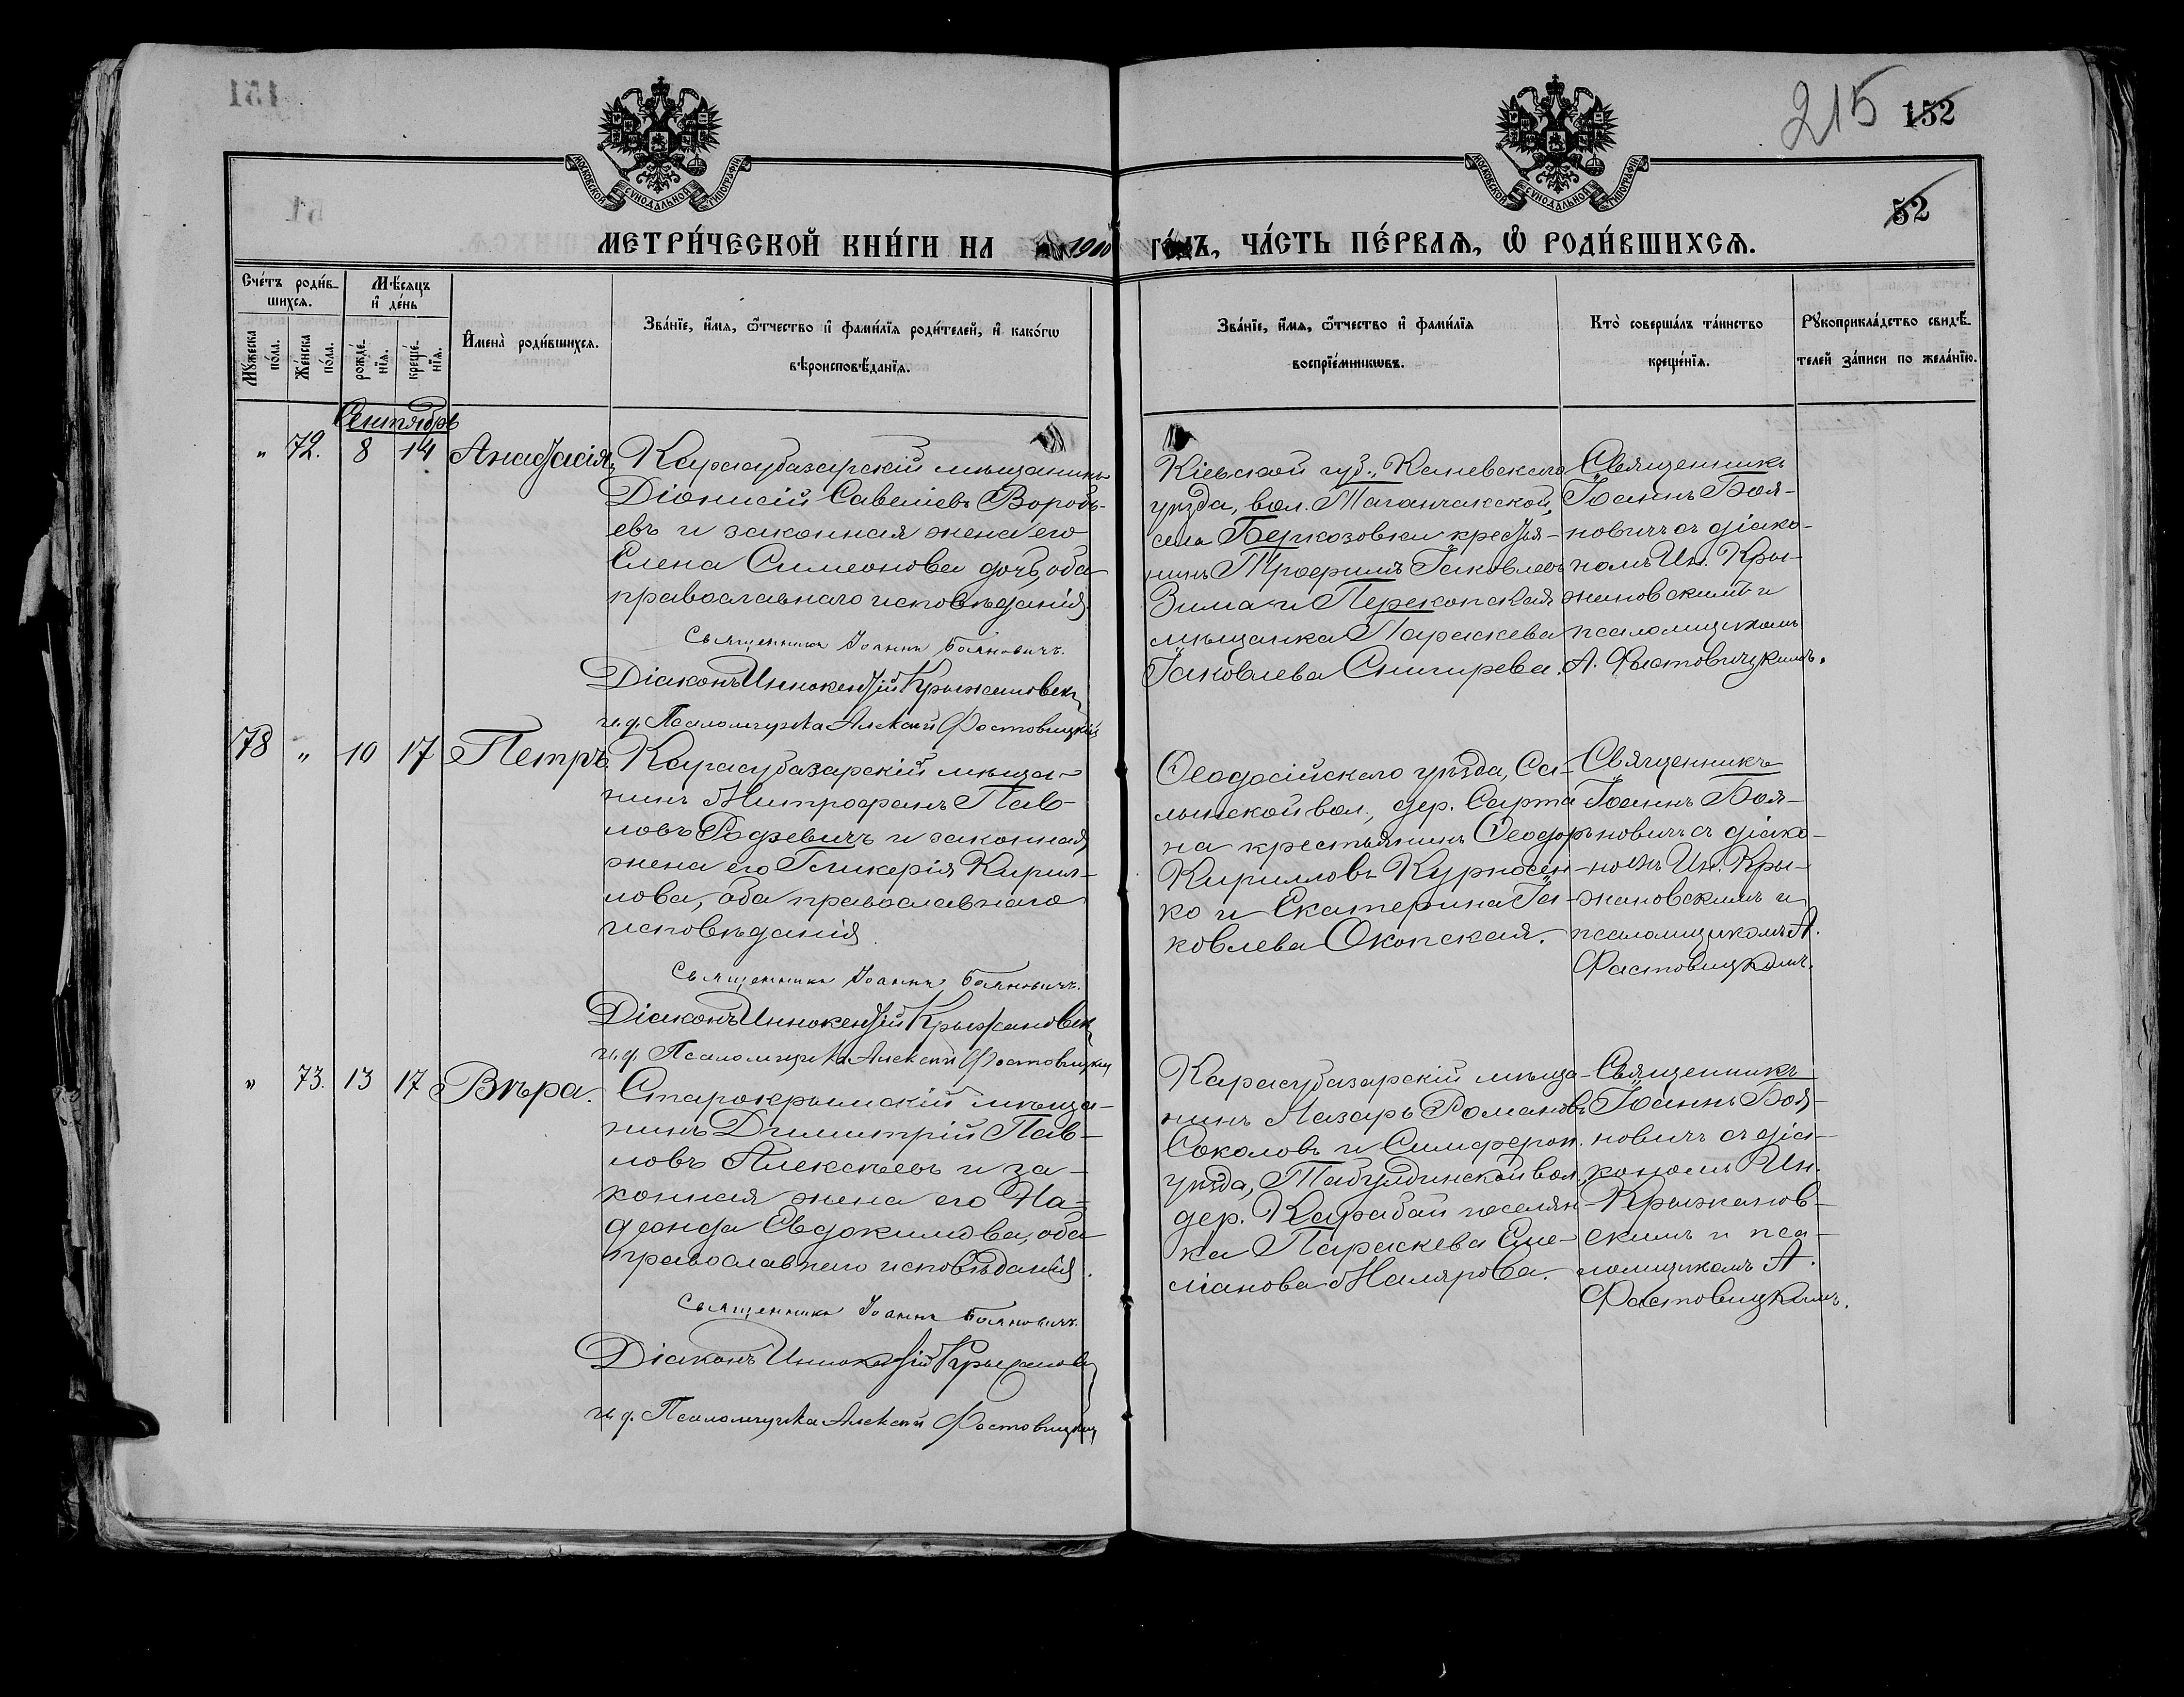 215 152
52
МОСКОВСКОЙ СУНОДАЛЬНОЙ ТИПОГРАФІИ
МОСКОВСКОЙ СУНОДАЛЬНОЙ ТИПОГРАФІИ
МЕТРИ́ЧЕСКОЙ КНИ́ГИ НА 1900 ГО́ДЪ, ЧА́СТЬ ПЕ́РВАѦ, Ѡ҆ РОДИ́ВШИХСѦ.
Сче́тъ роди́в-
шихсѧ.
Мꙋжеска по́ла.
Же́нска по́ла.
Мѣ́сѧцъ
и҆ де́нь
рожде́нїѧ.
креще́нїѧ.
И҆мена̀ роди́вшихсѧ.
Зва́нїе, и҆́мѧ, ѻ҆́тчество и҆ фами́лїѧ роди́телей, и҆ како́гѡ
вѣроисповѣ́данїѧ.
Зва́нїе, и҆́мѧ, ѻ҆́тчество и҆ фами́лїѧ
воспрїе́мникѡвъ.
Кто̀ соверша́лъ та́инство
креще́нїѧ.
Рꙋкоприкла́дство свидѣ́-
телей за́писи по жела́нїю.
Сентябрь
" 72. 8 14 Анастасія
Карасубазарскій мѣщанинъ
Діонисій Савеліевъ Воробь-
евъ и законная жена его
Елена Симеонова дочь, оба
православнаго исповѣданія
Священникъ Іоаннъ Бояновичъ.
Діаконъ Иннокентій Крыжановск
и. д. Псаломщика Алексій Фастовицкій
Кіевской губ., Каневскаго
уѣзда, вол. Таганчакской,
села Берказовки крестья-
нинъ Трофимъ Іаковлевъ
Зима и Перекопская
мѣщанка Параскева
Іаковлева Снигирева.
Священникъ
Іоаннъ Боя-
новичъ съ діако-
номъ Ин. Кры-
жановскимъ и
псаломщикомъ
А. Фастовицкимъ.
78 " 10 17 Петръ
Карасубазарскій мѣща-
нинъ Митрофанъ Пав-
ловъ Радзевичъ и законная
жена его Гликерія Кирил-
лова, оба православнаго
исповѣданія.
Священникъ Іоаннъ Бояновичъ.
Діаконъ Иннокентій Крыжановск
и. д. Псаломщика Алексій Фастовицкій
Ѳеодосійскаго уѣзда, Са-
лынской вол., дер. Сарта
на крестьянинъ Ѳеодоръ
Кирилловъ Курносен-
ко и Екатерина Іа-
ковлева Окопская.
Священникъ
Іоаннъ Боя-
новичъ съ діако-
номъ Ин. Кры-
жановскимъ и
псаломщикомъ А.
Фастовицкимъ.
" 73. 13 17 Вѣра.
Старокрымскій мѣща-
нинъ Димитрій Пав-
ловъ Алексѣевъ и за-
конная жена его На-
дежда Евдокимова, оба
православнаго исповѣданія.
Священникъ Іоаннъ Бояновичъ.
Діаконъ Иннокентій Крыжановск
и. д. Псаломщика Алексій Фастовицкій
Карасубазарскій мѣща-
нинъ Назаръ Романовъ
Соколовъ и Симфероп.
уѣзда, Табулдинской вол.,
дер. Карабай поселян-
ка Параскева Еме-
ліанова Малярова.
Священникъ
Іоаннъ Боя-
новичъ съ діа-
кономъ Ин.
Крыжанов-
скимъ и пса-
ломщикомъ А.
Фастовицкимъ.